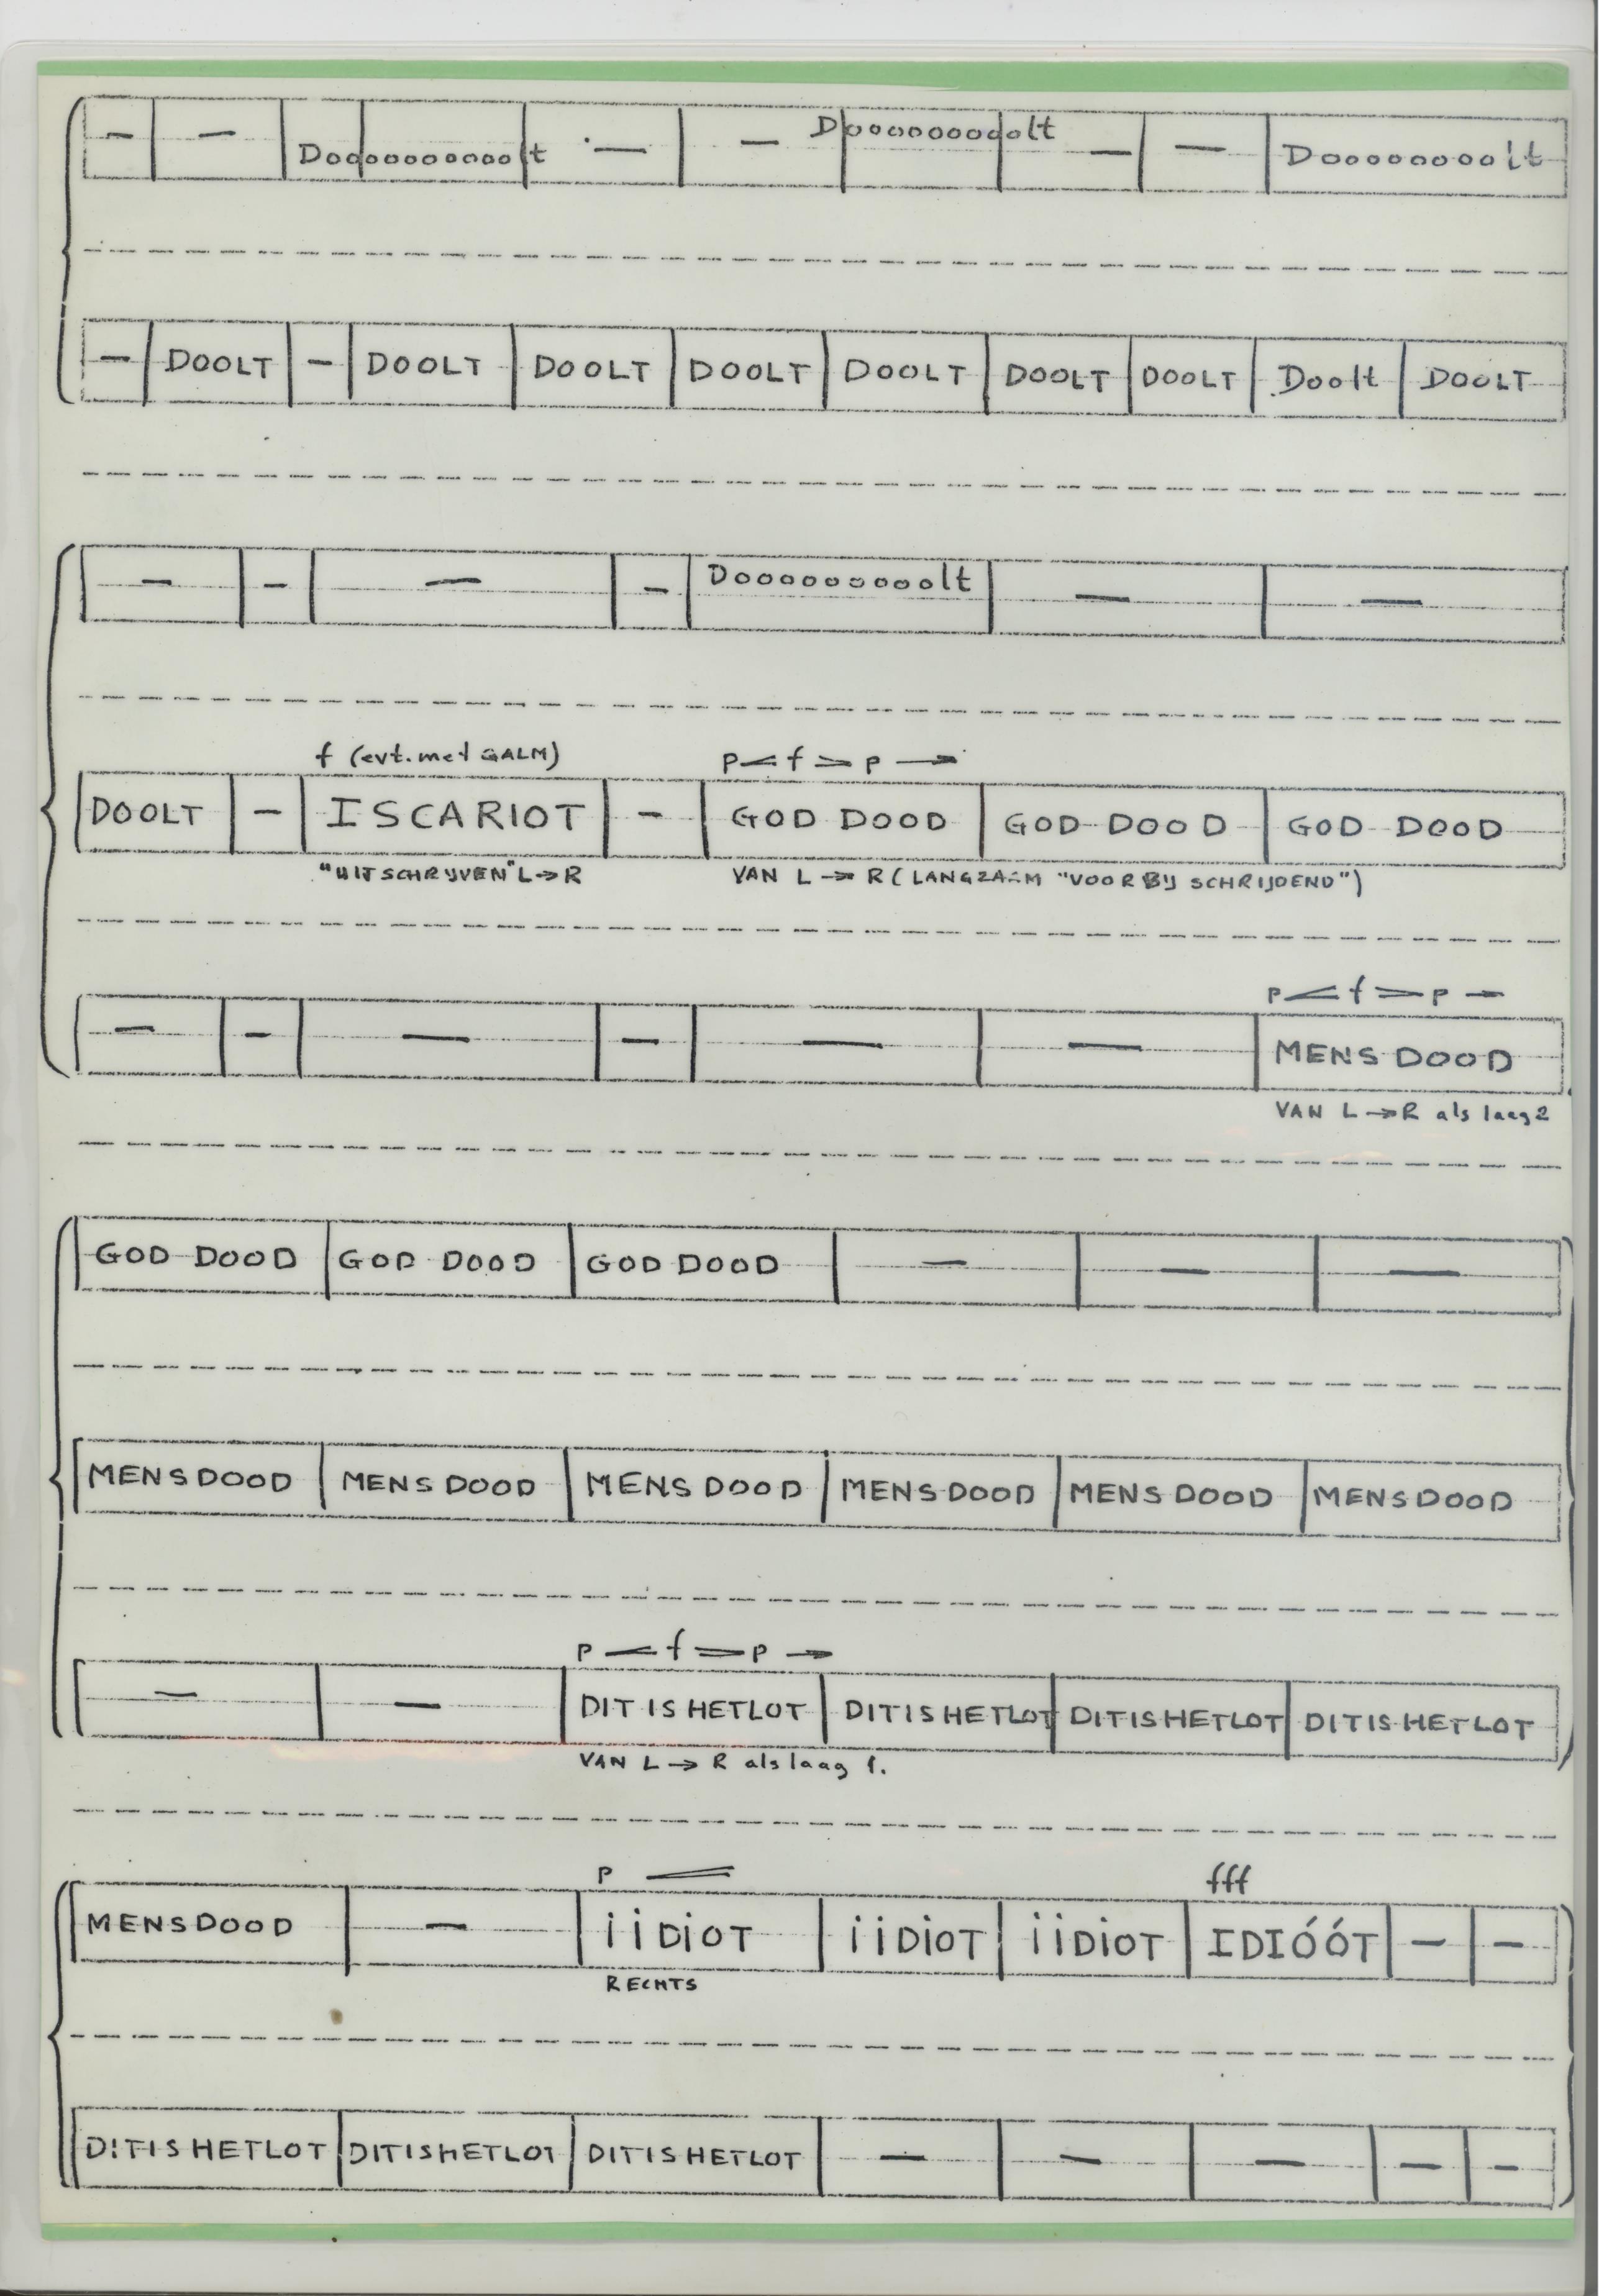 – – Doooooooooolt – – Doooooooooolt – – Doooooooolt
– DOOLT – DOOLT DOOLT DOOLT DOOLT DOOLT DOOLT Doolt DOOLT
– – – – Doooooooooolt – –
f (evt. met GALM) p < f > p →
DOOLT – ISCARIOT – GOD DOOD GOD DOOD GOD DOOD
"UITSCHRIJVEN" L→R VAN L → R (LANGZAAM "VOORBIJ SCHRIJDEND")
p < f > p →
– – – – – – MENS DOOD
VAN L → R als laag 2
GOD DOOD GOD DOOD GOD DOOD – – –
MENS DOOD MENS DOOD MENS DOOD MENS DOOD MENS DOOD MENS DOOD
p < f > p →
– – DIT IS HETLOT DITIS HETLOT DITIS HETLOT DITIS HETLOT
VAN L → R als laag 1.
p < fff
MENSDOOD – iiDiOT iiDiOT iiDiOT IDIÓÓT – –
RECHTS
DITIS HETLOT DITISHETLOT DITIS HETLOT – – – – –